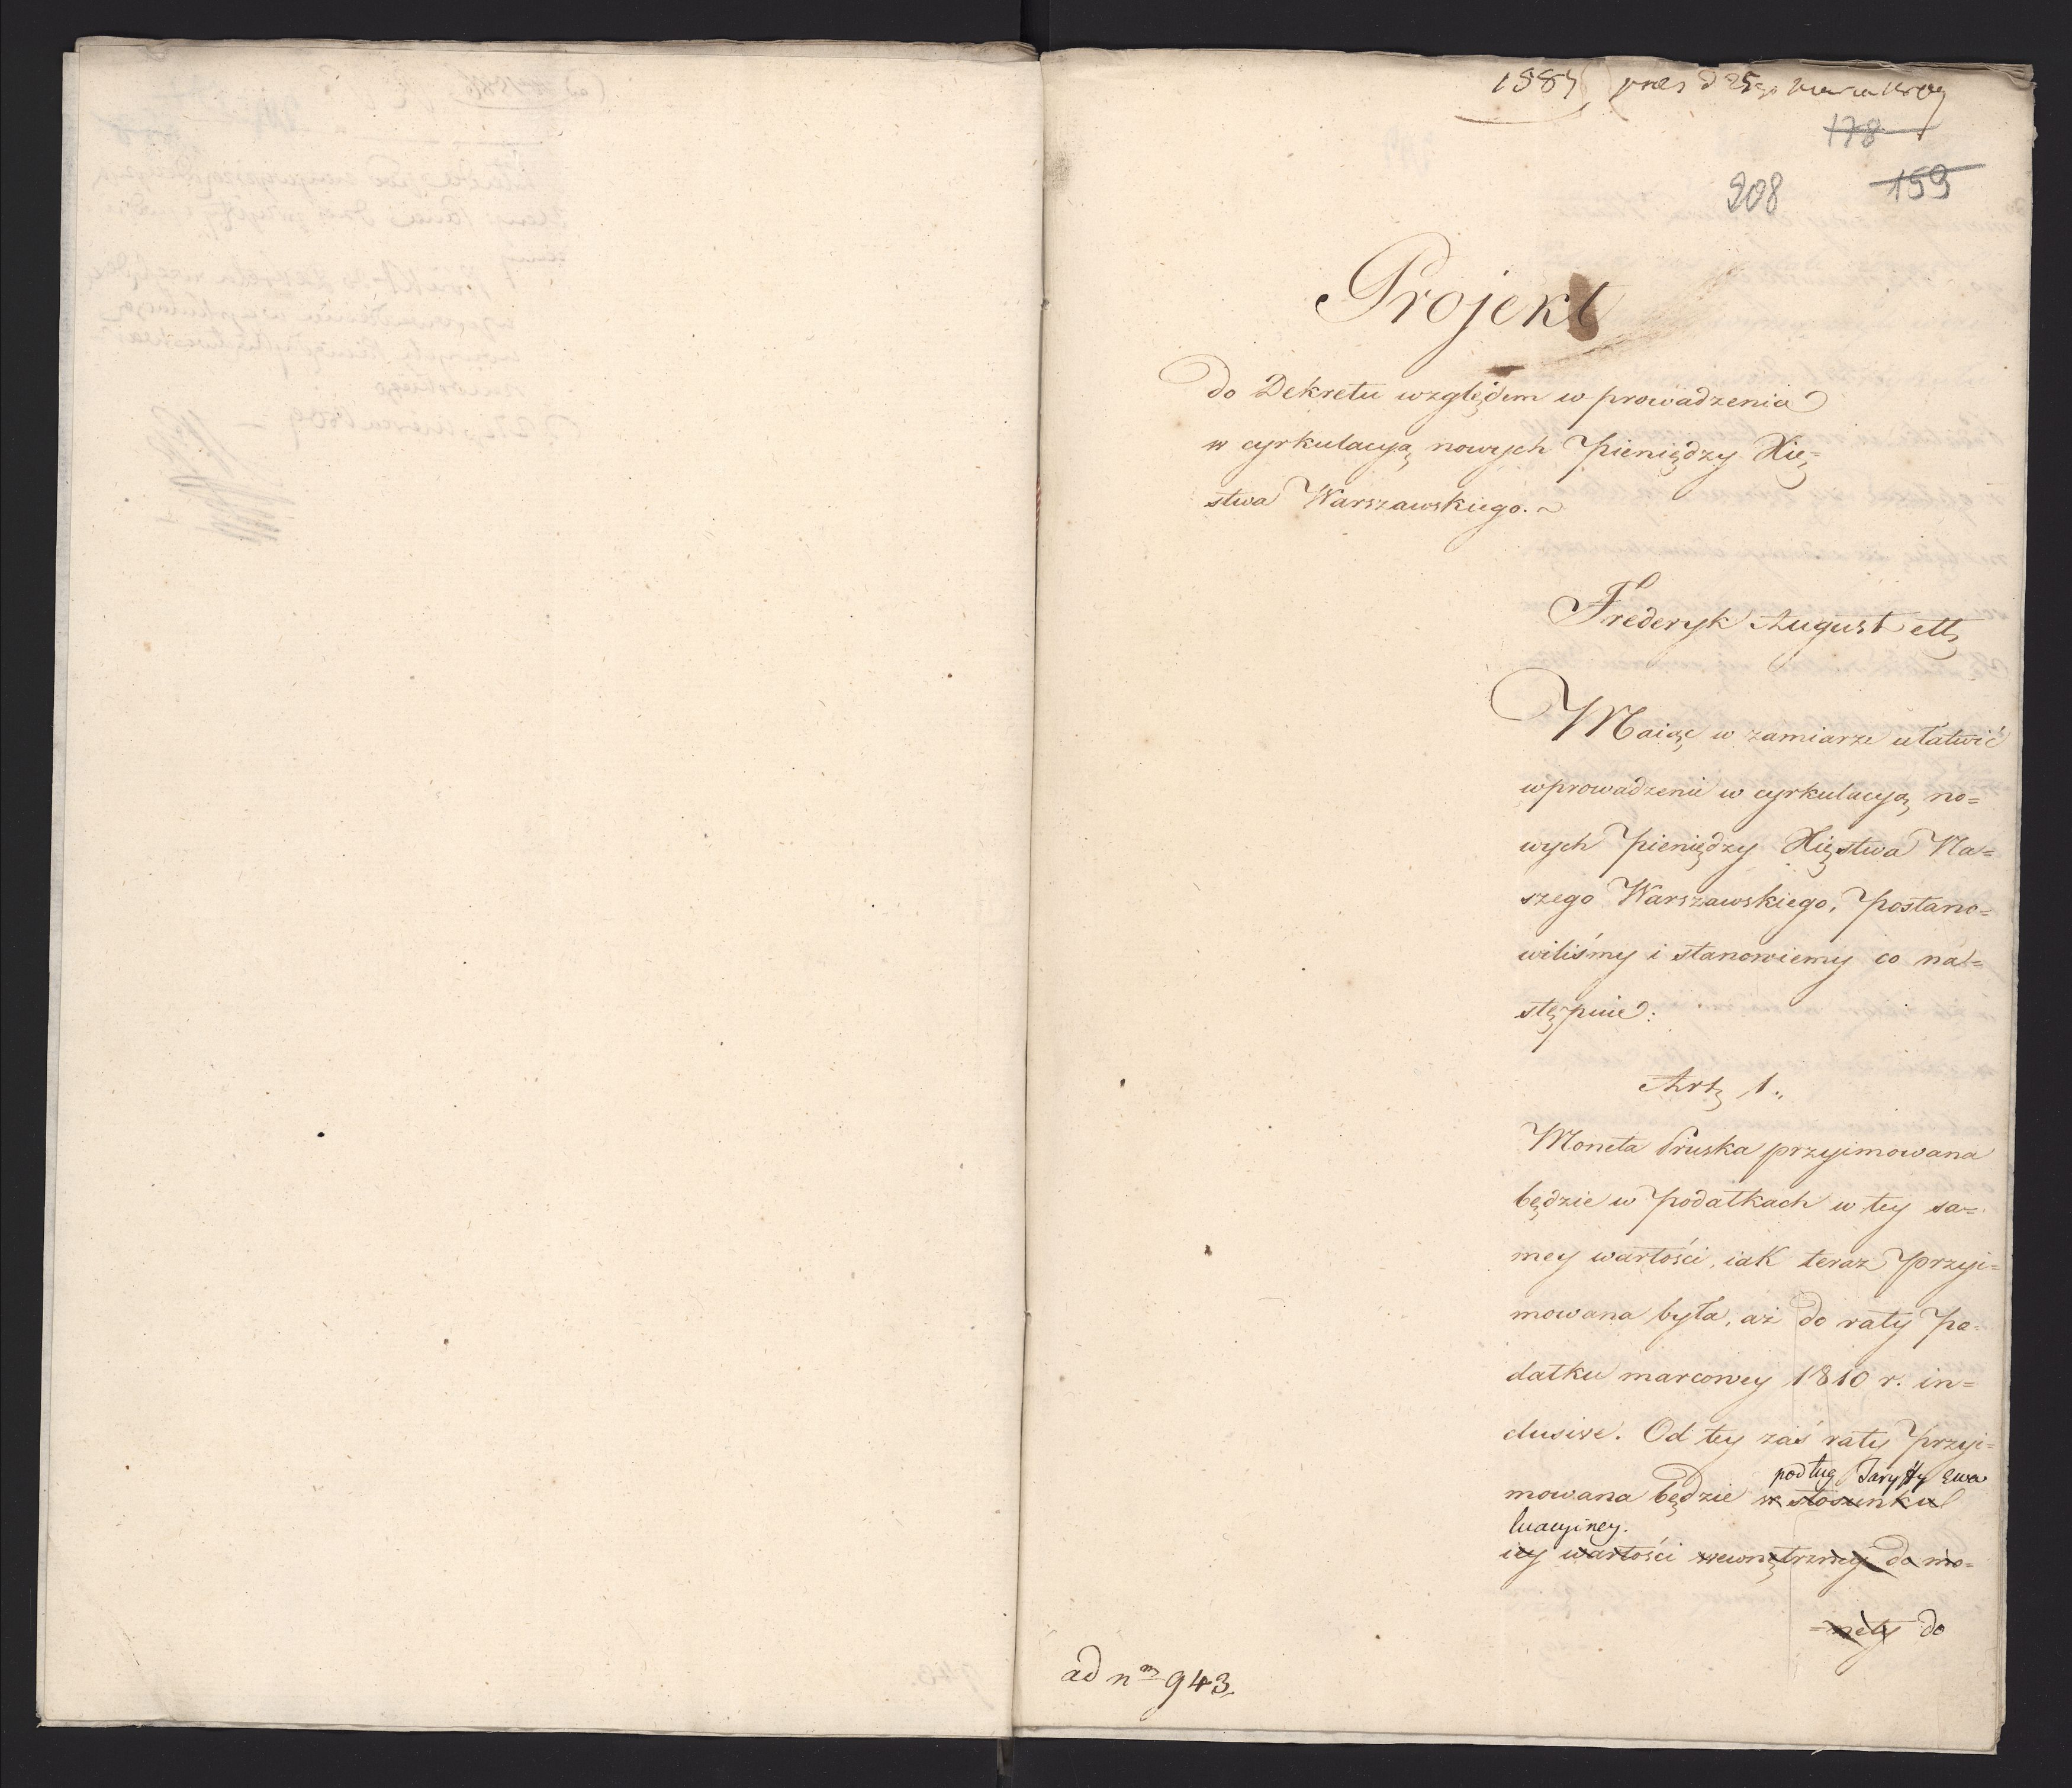 1884
178
159
908
Projekt
do Dekretu względem w prowadzenia
w cyrkulacyą nowych Pieniędzy Xię=
stwa Warszawskiego. ~
Frederyk August ett
Maiąc w zamiarze ułatwić
wprowadzenie w cyrkulacyą no=
wych Pieniędzy Xięstwa Na=
szego Warszawskiego, Postano=
wiliśmy i stanowiemy co na=
stępuie:
Art 1.,
Moneta Pruska przyimowana
będzie w Podatkach w tey sa=
mey wartości, iak teraz Przyi=
mowana była, aż do raty Po=
datku marcowey 1810 r. in=
clusive. Od tey zaś raty Przyi=
podług Taryffy Ewa
mowana będzie w stosunku
luacyiney.
iey wartości wewnętrzney do mo=
=nety do
ad nm 943.